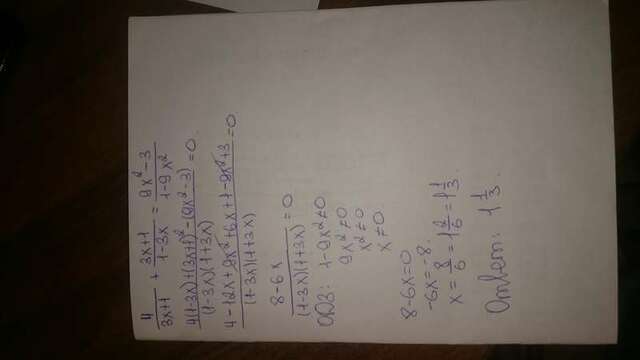 4/(3x+1) + (3x+1)/(1-3x) = (9x²-3)/(1-9x²)
(4(1-3x)+(3x+1)²-(9x²-3))/((1-3x)(1+3x)) = 0
(4-12x+9x²+6x+1-9x²+3)/((1-3x)(1+3x)) = 0
(8-6x)/((1-3x)(1+3x)) = 0
ОДЗ: 1-9x²≠0
9x²≠0
x²≠0
x≠0
8-6x=0
-6x=-8.
x = 8/6 = 1 2/6 = 1 1/3.
Ответ: 1 1/3.